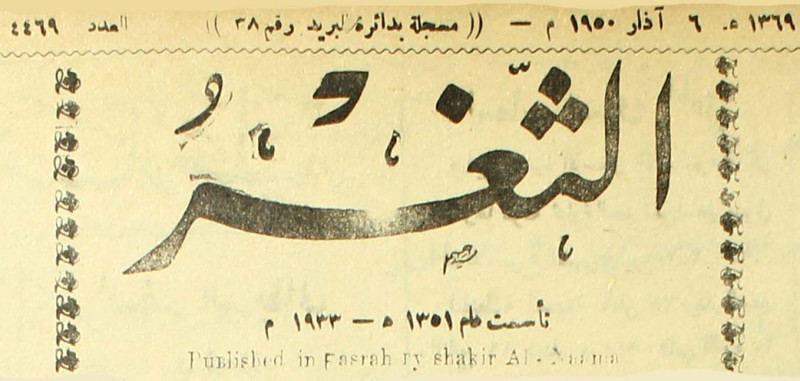 ١٣٦٩ ه‍. ٦ آذار ١٩٥٠ م — (( مسجلة بدائرة البريد رقم ٣٨ )) العدد ٤٤٦٩
الثَّغْرُ
تأسست عام ١٣٥١ ه — ١٩٣٣ م
Published in Fasrah ry shakir Al-Naama